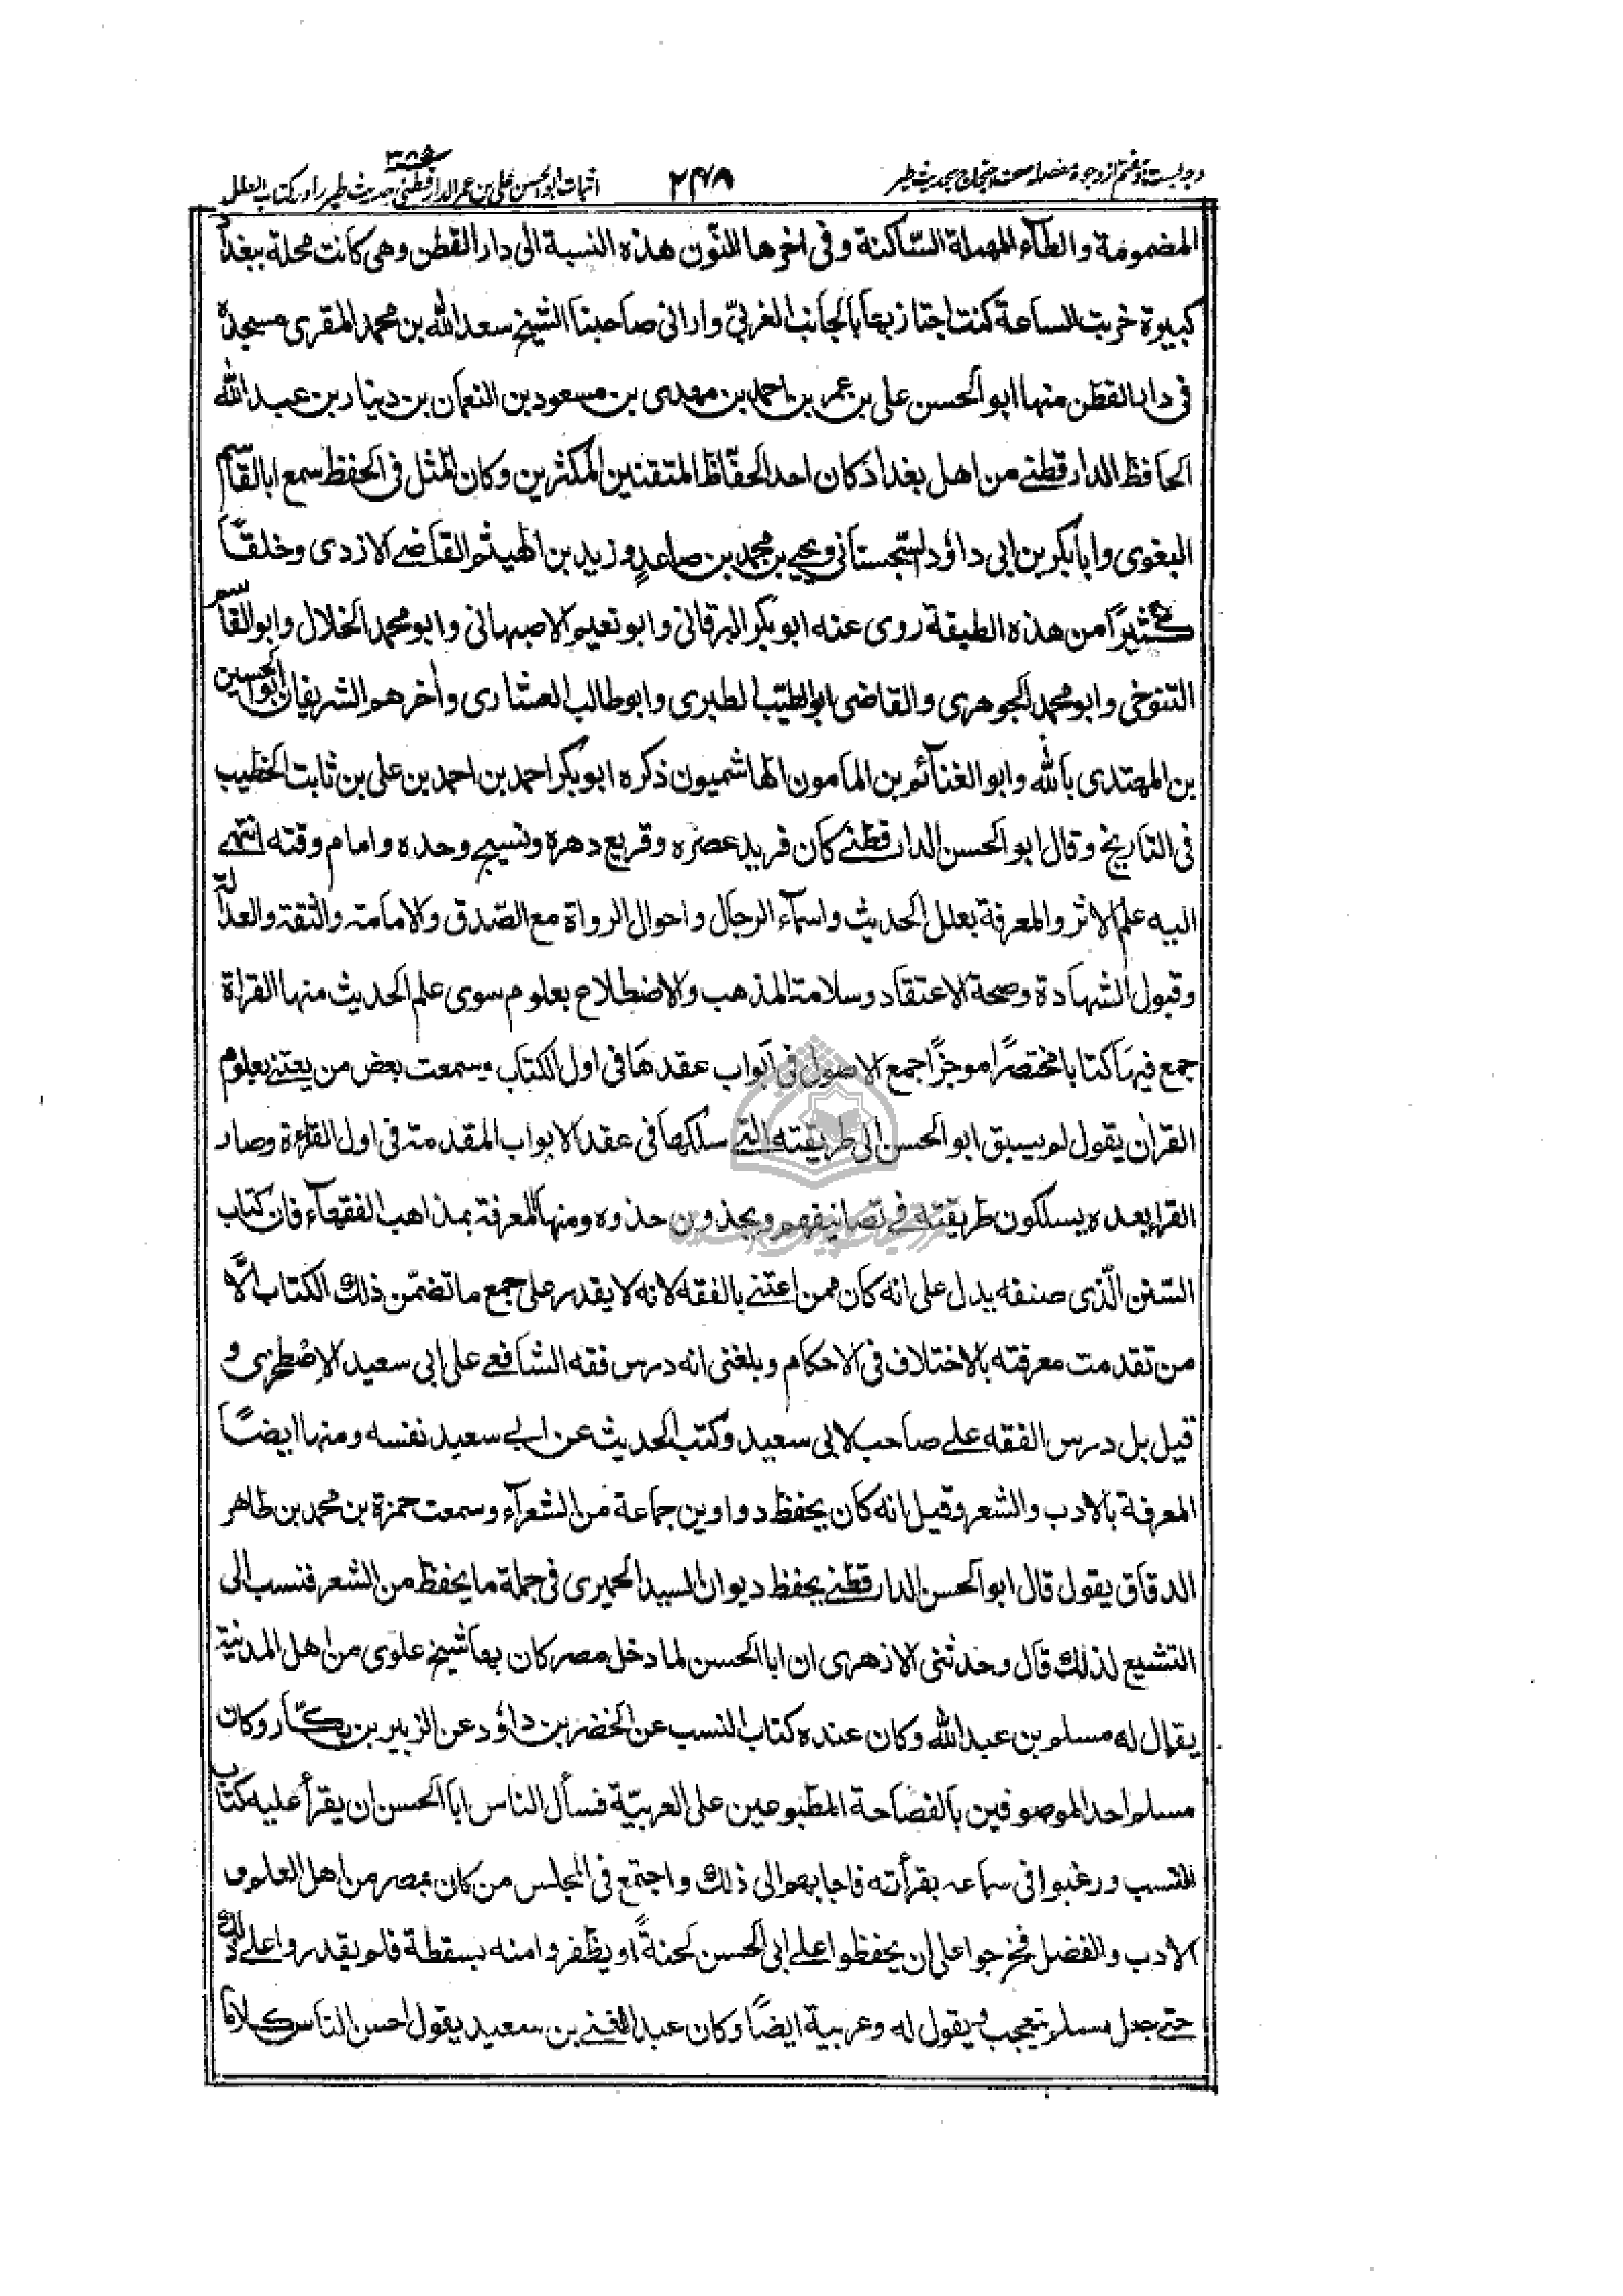 وجه بست و هفتم از وجوه مفصله صحت و احتجاج بحدیث طیر
۲۴۸
اثبات ابو الحسن علی بن عمر الدارقطنی حدیث طیر را در کتاب العلل
۳۸۵
المضمومة والطآء المهملة السّاكنة وفی اخرها النّون هذه النسبة الی دار القطن وهی كانت محلة ببغداد
كبیرة خربت الساعة كنت اجتاز بها بالجانب الغربیّ وارانی صاحبنا الشیخ سعد الله بن محمد المقری مسجده
فی دار القطن منها ابو الحسن علی بن عمر بن احمد بن مهدی بن مسعود بن النعمان بن دینار بن عبد الله
الحافظ الدارقطنے من اهل بغداد كان احد الحفّاظ المتقنین المكثرین وكان المثل فی الحفظ سمع ابا القاسم
البغوی وابا بكر بن ابی داؤد السّجستانی ویحیے بن محمد بن صاعد وزید بن الهیثم القاضے الازدی وخلقًا
كثیرًا من هذه الطبقة روی عنه ابو بكر البرقانی وابو نعیم الاصبهانی وابو محمد الخلال وابو القاسم
التنوخی وابو محمد الجوهری والقاضی ابو الطیب الطبری وابو طالب العشاری وأخرهم الشریفان ابو الحسین
بن المهتدی بالله وابو الغنآئم بن المأمون الهاشمیون ذكره ابو بكر احمد بن احمد بن علی بن ثابت الخطیب
فی التاریخ وقال ابو الحسن الدارقطنے كان فرید عصره وقریع دهره ونسیج وحده وامام وقته انتهے
الیه علم الاثر والمعرفة بعلل الحدیث واسمآء الرجال واحوال الرواة مع الصّدق والامامة والثقة والعدالة
وقبول الشهادة وصحة الاعتقاد وسلامة المذهب والاضطلاع بعلوم سوی علم الحدیث منها القراة
جمع فیها كتابا مختصرًا موجزًا جمع الاصول فی ابواب عقدها فی اول الكتاب وسمعت بعض من یعتنے بعلوم
القرأن یقول لم یسبق ابو الحسن الی طریقته التے سلكها فی عقد الابواب المقدمة فی اول القراءة وصار
القراء بعده یسلكون طریقته فے تصانیفهم ویحذون حذوه ومنها المعرفة بمذاهب الفقهآء فان كتاب
السّنن الّذی صنفه یدل علی انه كان ممن اعتنے بالفقه لانه لا یقدر علی جمع ما تضمّن ذلك الكتاب الّا
من تقدمت معرفته بالاختلاف فی الاحكام وبلغنی انه درس فقه الشافعے علی ابی سعید الاصطخری و
قیل بل درس الفقه علے صاحب لابی سعید وكتب الحدیث عن ابے سعید نفسه ومنها ایضًا
المعرفة بالادب والشعر وقیل انه كان یحفظ دواوین جماعة من الشعرآء وسمعت حمزة بن محمد بن طاهر
الدقاق یقول قال ابو الحسن الدارقطنے یحفظ دیوان السید الحمیری فی جملة ما یحفظ من الشعر فنسب الی
التشیع لذلك قال وحدثنی الازهری ان ابا الحسن لما دخل مصر كان بها شیخ علوی من اهل المدنیة
یقال له مسلم بن عبد الله وكان عنده كتاب النسب عن الخضر بن داؤد عن الزبیر بن بكّار وكان
مسلم احد الموصوفین بالفصاحة المطبوعین علی العربیّة فسأل الناس ابا الحسن ان یقرأ علیه كتاب
النسب ورغبوا فی سماعه بقرأته فاجابهم الی ذلك واجتمع فی المجلس من كان بمصر من اهل العلم و
الادب والفضل فخرجوا علی ان یحفظوا علے ابی الحسن لحنةً او یظفروا منه بسقطة فلم یقدروا علے ذلك
حتے جعل مسلم یتعجب ویقول له وعربیة ایضًا وكان عبد الغنے بن سعید یقول احسن الناس كلاما